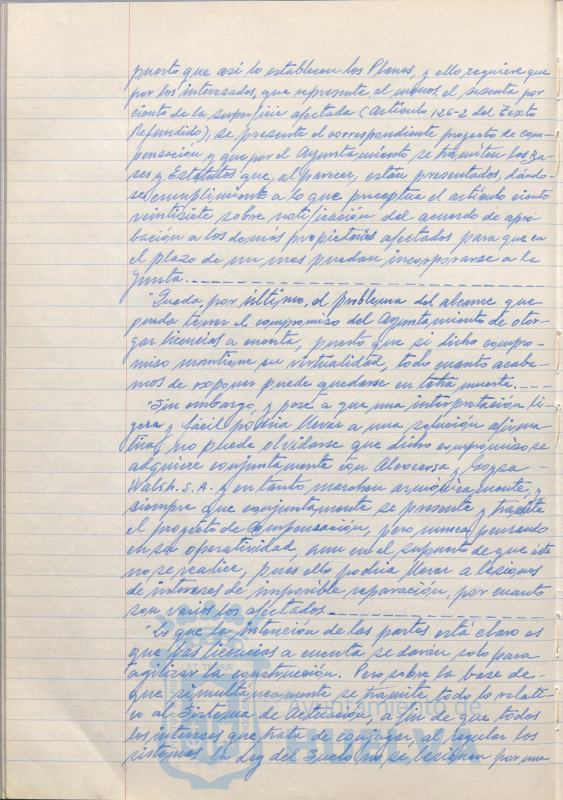 puesto que así lo establecen los Planes, y ello requiere que
por los interesados, que represente, al menos, el sesenta por
ciento de la superficie afectada (Artículo 126-2 del Texto
Refundido), se presente el correspondiente proyecto de com-
pensación y que por el Ayuntamiento se tramiten las Ba-
ses y Estatutos que, al parecer, están presentados, dándo-
se cumplimiento a lo que preceptua el artículo ciento
veintisiete sobre notificación del acuerdo de apro-
bación a los demás propietarios afectados para que en
el plazo de un mes puedan incorporarse a la
Junta.
"Queda, por último, el problema del alcance que
pueda tener el compromiso del Ayuntamiento de otor-
gar licencias a cuenta, puesto que si dicho compro-
miso mantiene su virtualidad, todo cuanto acaba-
mos de exponer puede quedarse en letra muerta.
"Sin embargo, y pese a que una interpretación li
gera y fácil podría llevar a una solución afirma
tiva, no puede olvidarse que dicho compromiso se
adquiere conjuntamente con y
Walsh. S.A. y en tanto marchen armónicamente, y
siempre que conjuntamente se presente y tramite
el proyecto de Compensación, pero nunca pensando
en su operatividad, aun en el supuesto de que éste
no se realice, pues ello podría llevar a lesiones
de intereses de imposible reparación, por cuanto
son varios los afectados.
"Es que la intención de las partes está claro es
que las licencias a cuenta se darán solo para
agilizar la construcción. Pero sobre la base de
que simultáneamente se tramite todo lo relati
vo al Sistema de Actuación, a fin de que todos
los intereses que trata de conjugar, al regular los
sistemas la Ley del Suelo no se lesionen por una
Ayuntamiento de
HUELVA